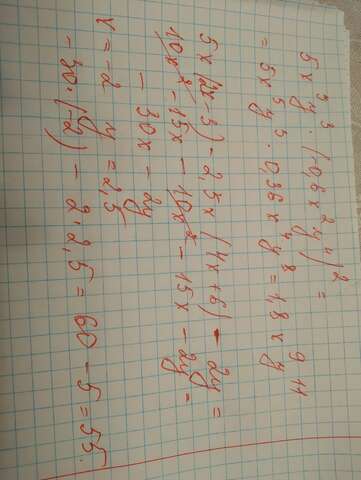 5x⁵y³·(-0,6x²y⁴)² =
= 5x⁵y³·0,36x⁴y⁸ = 1,8x⁹y¹¹
5x(2x-3) - 2,5x(4x+6) - 2y =
10x² - 15x - 10x² - 15x - 2y =
- 30x - 2y
x = -2 y = 2,5
-30·(-2) - 2·2,5 = 60 - 5 = 55.